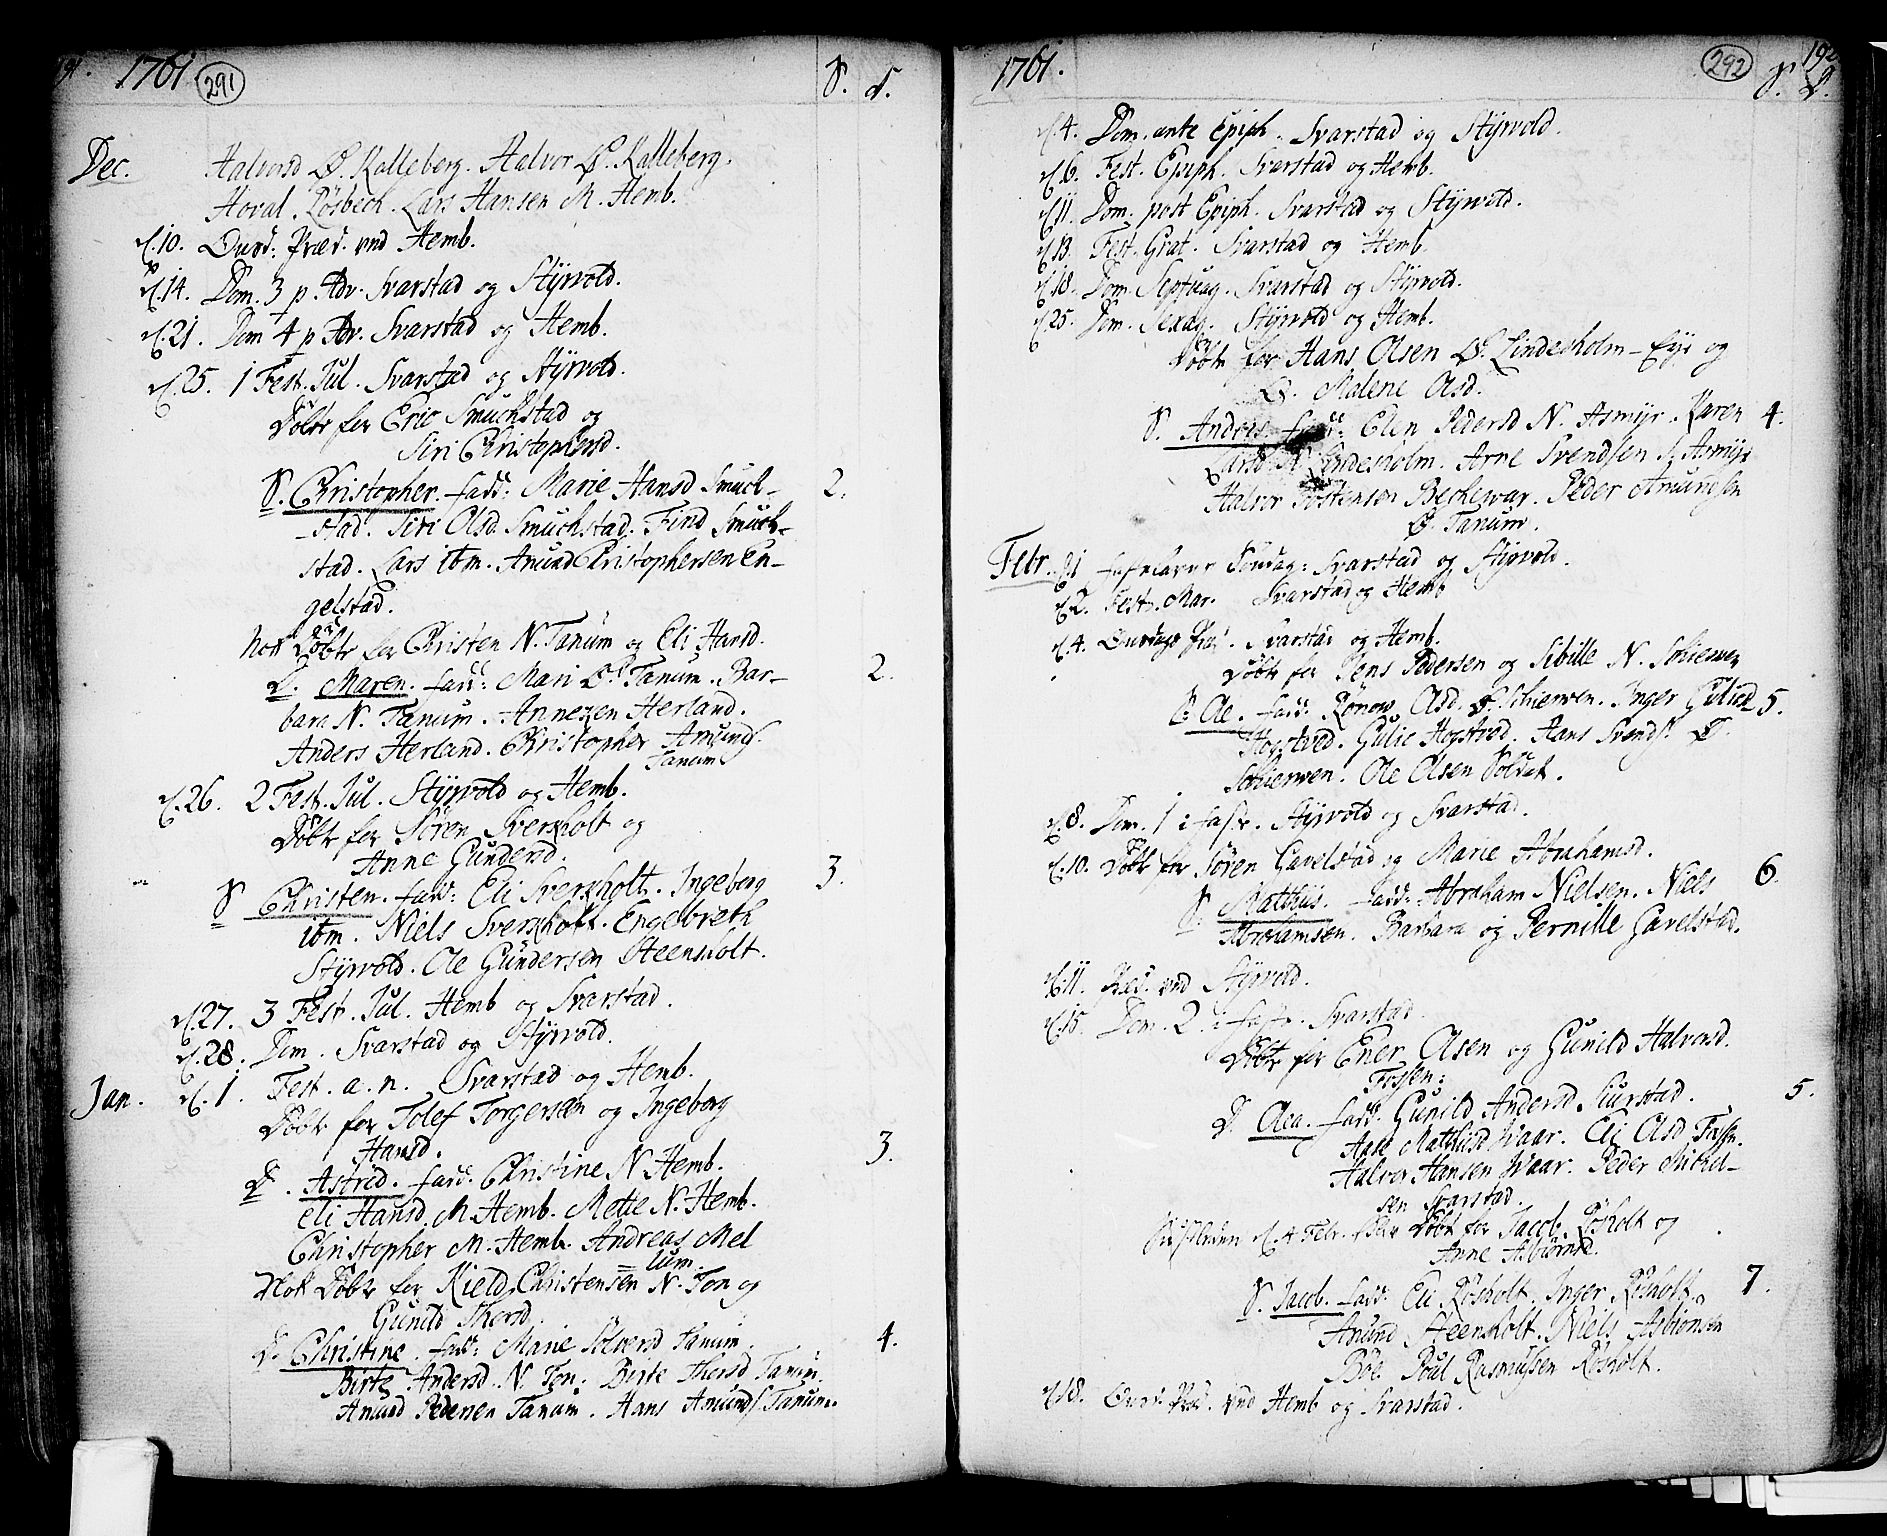 191. 1761 291 S. D.
Dec. Halvorsd Ø. Kalleberg. Halvor Ø. Kalleberg.
Hoval. Røsbech. Lars Hansen M. Hemb.
d. 10. Onsd: Præd. ved Hemb.
d. 14. Dom. 3 p. Adv. Svarstad og Styrvold.
d. 21. Dom 4 p Adv. Svarstad og Hemb.
d. 25. 1 Fest. Jul. Svarstad og Styrvold.
Døbt for Eric Smuchstad og
Siri Christophersd.
S. Christopher. fadd: Marie Hansd Smuch- 2.
stad. Siri Olsd. Smuchstad. Find Smuch-
stad. Lars ibm. Anund Christophersen En-
gelstad.
Nok Døbt for Christen N. Tanum og Eli Hansd.
D. Maren. fadd: Mari Ø. Tanum. Bar- 2.
bara N. Tanum. Anne Herland.
Anders Herland. Christopher Amunds.
Tanum
d. 26. 2 Fest. Jul. Styrvold og Hemb.
Døbt for Søren Sverkholt og
Anne Gundersd.
S Christen. fadd: Eli Sverkholt. Ingeborg 3.
ibm. Niels Sverkholt. Engelbreth
Styrvold. Ole Gundersen Steensholt.
d. 27. 3 Fest. Jul. Hemb og Svarstad.
d. 28. Dom. Svarstad og Styrvold.
Jan. d. 1. Fest. a. n. Svarstad og Hemb.
Døbt for Tolef Torgersen og Ingeborg
Hansd.
D. Astrid. fadd. Christine N Hemb. 3.
Eli Hansd. M. Hemb. Mette N. Hemb.
Christopher M. Hemb. Andreas Mel
lum.
Nok Døbt for Kield Christensen N. Ton og
Gunild Thorsd.
D. Christine. fadd: Marie Solversd Tanum. 4.
Birte Andersd. N. Ton. Birte Thorsd Tanum.
Anund Pedersen Tanum. Hans Amunds. Tanum.
1761. 292 192
S. D.
d. 4. Dom. ante Epiph. Svarstad og Styrvold.
d. 6. Fest. Epiph. Svarstad og Hemb.
d. 11. Dom. post Epiph. Svarstad og Styrvold.
d. 13. Fest. Grat. Svarstad og Hemb.
d. 18. Dom. Septuag. Svarstad og Styrvold.
d. 25. Dom. Sexag. Styrvold og Hemb.
Døbt for Hans Olsen Ø. Lindesholm-Eye og
Malene Olsd.
S. Anders fadd: Elen Pedersd N. Asmyr. Karen 4.
Larsd N. Lindesholm. Arne Svendsen Asmyr
Halvor Tostensen Bechewar. Peder Amundsen
Ø. Tanum.
Febr. d. 1 fastelavns Søndag: Svarstad og Styrvold.
d. 2. Fest. Mar. Svarstad og Hemb
d. 4. Onsdags Præd. Svarstad og Hemb.
Døbt for Jens Pedersen og Sibille N. Schierven
S. Ole. fadd. Rønow Olsd. Ø. Schierven. Inger Gulicsd 5.
Hogstved. Gulic Hogstved. Hans Svends. Ø.
Schierven. Ole Olsen Soldat.
d. 8. Dom. 1 i faste. Styrvold og Svarstad.
d. 10. Døbt for Søren Gavelstad og Marie Abrahamsd.
S. Matthis. fadd: Abraham Nielsen. Niels 6.
Abrahamsen. Barbara og Pernille Gavelstad.
d. 11. Præd. ved Styrvold.
d. 15. Dom. 2. i faste. Svarstad.
Døbt for Ener Olsen og Gunild Halvorsd.
Fossen:
D. Olea. fadd. Gunild Andersd Suurstad. 5.
Aase Matthisd Waar. Eli Olsd Fossen.
Halvor Hansen Waar. Peder Michel-
sen Svarstad.
d. 4 Febr. blev Døbt for Jacob Røsholt og
Anne Asbiørnsd.
S. Jacob. fadd: Eli Røsholt. Inger Røsholt. 7.
Anund Steensholt. Niels Asbiønsen
Bøe. Poul Rasmussen Røsholt.
d. 18. Onsd. Præd. ved Hemb og Svarstad.